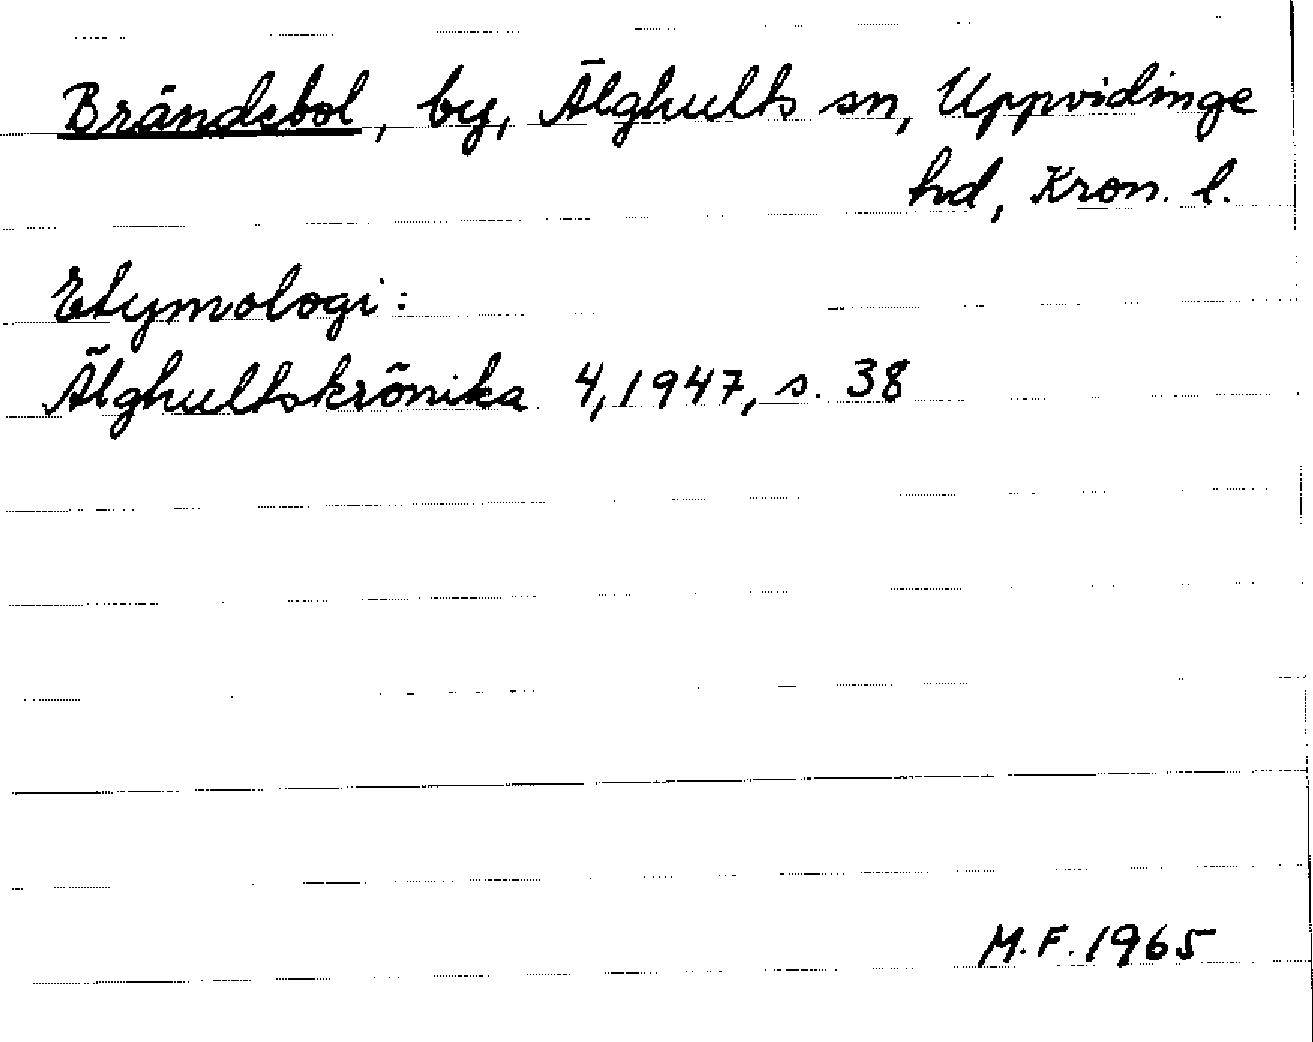 Brändebol, by, Älghults sn, Uppvidinge
hd, Kron. l.
Etymologi:
Älghultskrönika 4, 1947, s. 38
M.F. 1965